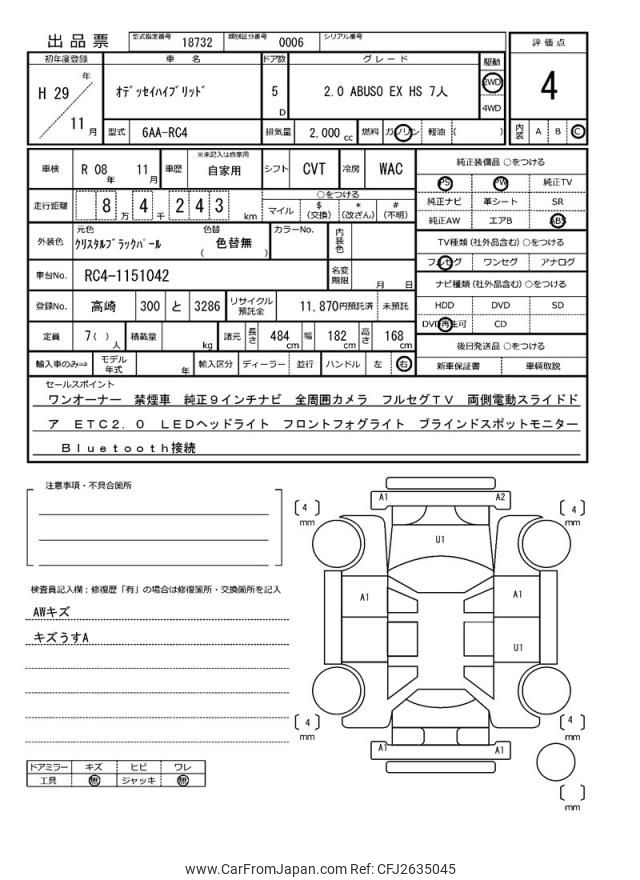 出品票 型式指定番号 18732 類別区分番号 0006 シリアル番号
評価点
4
内装 A B C
初年度登録 車名 ドア数 グレード 駆動
H 29年 11月 ｵﾃﾞｯｾｲﾊｲﾌﾞﾘｯﾄﾞ 5 D 2.0 ABUSO EX HS 7人 2WD
4WD
型式 6AA-RC4 排気量 2,000 cc 燃料 ガソリン 軽油 ( )
車検 R 08年 11月 車歴 ※未記入は自家用 自家用 シフト CVT 冷房 WAC
走行距離 8万 4千 2 4 3 km ○をつける
マイル $(交換) *(改ざん) #(不明)
外装色 元色 ｸﾘｽﾀﾙﾌﾞﾗｯｸﾊﾟｰﾙ 色替 ( 色替無 ) カラーNo. 内装色
車台No. RC4-1151042 名変期限 月 日
登録No. 高崎 300 と 3286 リサイクル預託金 11,870円預託済 未預託
定員 7( )人 積載量 kg 諸元 長さ 484cm 幅 182cm 高さ 168cm
輸入車のみ⇒ モデル年式 年 輸入区分 ディーラー 並行 ハンドル 左 右
純正装備品 ○をつける
PS PW 純正TV
純正ナビ 革シート SR
純正AW エアB ABS
TV種類(社外品含む)○をつける
フルセグ ワンセグ アナログ
ナビ種類(社外品含む)○をつける
HDD DVD SD
DVD再生可 CD
後日発送品 ○をつける
新車保証書 車輌取説
セールスポイント
ワンオーナー 禁煙車 純正９インチナビ 全周囲カメラ フルセグＴＶ 両側電動スライドド
ア ＥＴＣ２．０ ＬＥＤヘッドライト フロントフォグライト ブラインドスポットモニター
Ｂｌｕｅｔｏｏｔｈ接続
注意事項・不具合箇所
検査員記入欄：修復歴「有」の場合は修復箇所・交換箇所を記入
AWキズ
キズうすA
ドアミラー キズ ヒビ ワレ
工具 無 ジャッキ 無
A1 A2
[ 4 ] mm
[ 4 ] mm
U1
A1 A1
U1
[ 4 ] mm
[ 4 ] mm
A1 A1
[ ] mm
www.CarFromJapan.com Ref: CFJ2635045